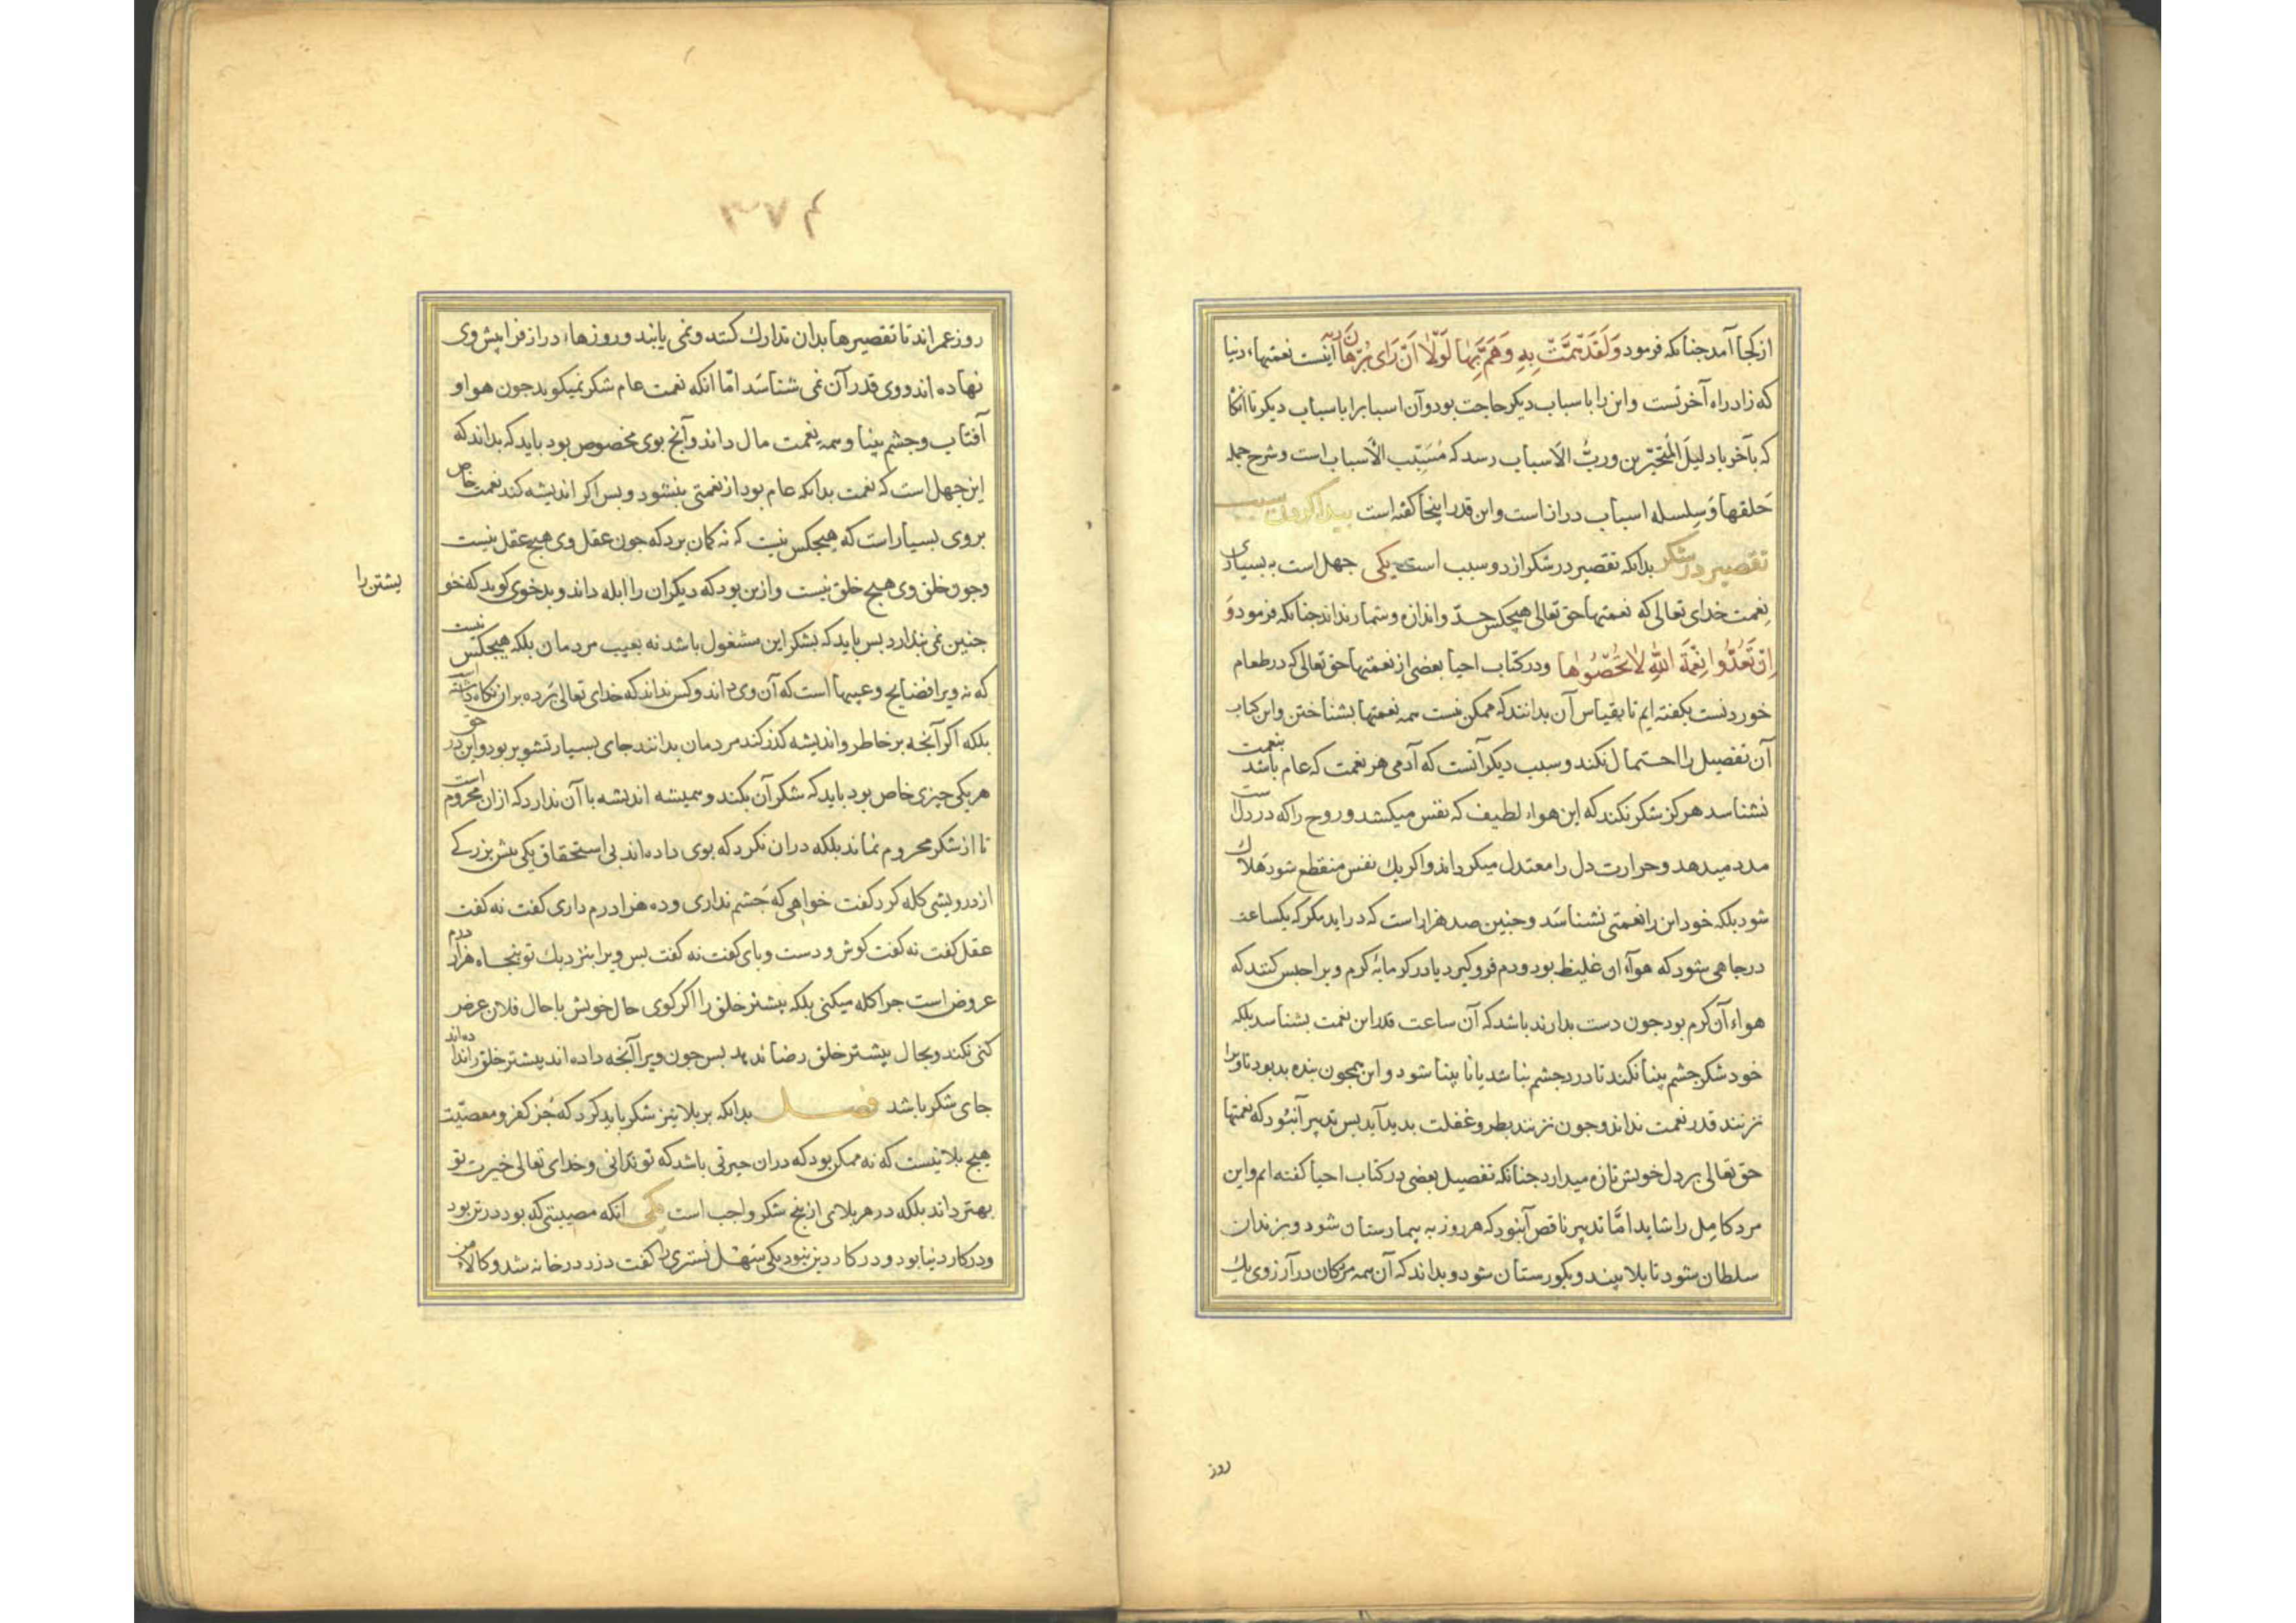 از کجا آمد جنانکه فرمود وَلَقَدْ هَمَّتْ بِهِ وَهَمَّ بِهَا لَوْلَا اَنْ رَاى بُرْهَانَ رَبِّه اینست نعمتهاء دنیا
که زاد راه آخرتست و این را باسباب دیکر حاجت بود و آن اسبابرا باسباب دیکر تا آنکاه
که بآخر با دلیلَ المُتَحَیِّرین و ربُّ الاَسباب رسد که مُسَبِّب الاَسباب است و شرح جمله
حَلقها وَ سِلسله اسباب دراز است و این قدر اینجا کفته است پیدا کردن سبب
تقصیر در شکر بدانکه تقصیر در شکر از دو سبب است یکی جهل است به بسیاری
نِعمت خدای تعالی که نعمتهاء حق تعالی هیچکس حدّ و اندازه و شمار نداند جنانکه فرمود وَ
اِنْ تَعُدُّوا نِعْمَةَ اللّٰهِ لاٰ تُحْصُوهٰا و در کتاب احیا بعضی از نعمتهاء حق تعالی که در طعام
خوردنست بکفته ایم تا بقیاس آن بدانند که ممکن نیست همه نعمتها بشناختن و این کتاب
آن تفصیل را احتمال نکند و سبب دیکر آنست که آدمی هر نعمت که عام باشد بنعمت
نشناسد هرکز شکر نکند که این هواء لطیف که نفس میکشد و روح را که در دلست
مدد میدهد و حرارت دل را معتدل میکرداند و اکر یك نفس منقطع شود هَلاك
شود بلکه خود این را نعمتی نشناسَد و جنین صد هزار است که در اید مکر که یکساعت
در جاهی شود که هواء ان غلیظ بود و دم فرو کیرد یا در کرمابهٔ کرم ویرا حبس کنند که
هواء آن کرم بود جون دست بدارند باشد که آن ساعت قدر این نعمت بشناسد بلکه
خود شکر جشم بینا نکند تا درد جشم نباشد یا نابینا شود و این همجون بنده بد بود تا ویرا
نزنند قدر نعمت نداند و جون نزنند بطر و غفلت بدید آید بس تدبیر آنبُود که نعمتهاء
حق تعالی بر دل خویش تازه میدارد جنانکه تفصیل بعضی در کتاب احیا کفته ام و این
مرد کامِل را شاید امّا تدبیر ناقص آنبود که هر روز به بیمارستان شود و بزندان
سلطان شود تا بلا بیند و بکورستان شود و بداند که آن همه مردکان در آرزوی یك
روز
۳۷۴
روز عمر اند تا تقصیرها بدان تدارك کنند و نمی یابند و روزهاء دراز فرا پیش وی
نهاده اند و وی قدر آن نمی شناسَد امّا انکه نعمت عام شکر نمیکوید جون هوا و
آفتاب و جشم بینا و همه نِعمت مال داند و آنج بوی مخصوص بود باید که بداند که
این جهل است که نعمت بدانکه عام بود از نعمتی بنشود و بس اکر اندیشه کند نعمت خاص
بر وی بسیار است که هیچکس نیست که نه کمان برد که جون عقل وی هیچ عقل نیست
و جون خلق وی هیچ خلق نیست و ازین بود که دیکران را ابله داند و بدخوی کوید که خو
یشتن را
جنین نمی بندارد بس باید که بشکر این مشغول باشد نه بعیب مردمان بلکه هیچکس نیست
که نه ویرا فضایح و عیبها است که آن وی داند و کس نداند که خدای تعالی بَرده بران نکاه داشته است
بلکه اکر آنجه بر خاطر و اندیشه کذر کند مردمان بدانند جای بسیار تشویر بود و این در حق
هر یکی جیزی خاص بود باید که شکر آن بکند و همیشه اندیشه با آن ندارد که ازان محروم است
تا از شکر محروم نماند بلکه دران نکرد که بوی داده اند بی استحقاق یکی بیش بزرکی
از درویشی کله کرد کفت خواهی که جَشم نداری و ده هزار درم داری کفت نه کفت
عقل کفت نه کفت کوش و دست و بای کفت نه کفت بس ویرا بنزدیك تو پنجاه هزار درم
عروض است جرا کله میکنی بلکه بیشتر خلق را اکر کوی حال خویش با حال فلان عرض
کنی نکند و بحال بیشتر خلق رضا ندهد بس جون ویرا آنجه داده اند بیشتر خلق را نداده اند
جای شکر باشد فصل بدانکه بر بلا نیز شکر باید کرد که جُز کفر و معصیّت
هیچ بلا نیست که نه ممکن بود که دران خیرتی باشد که تو ندانی و خدای تعالی خیرت تو
بهتر داند بلکه در هر بلای از پنج شکر واجب است یکی انکه مصیبتی که بود در تن بود
و در کار دنیا بود و در کار دین نبود یکی سَهْل تستری را کفت دزد در خانه شد و کالاء من